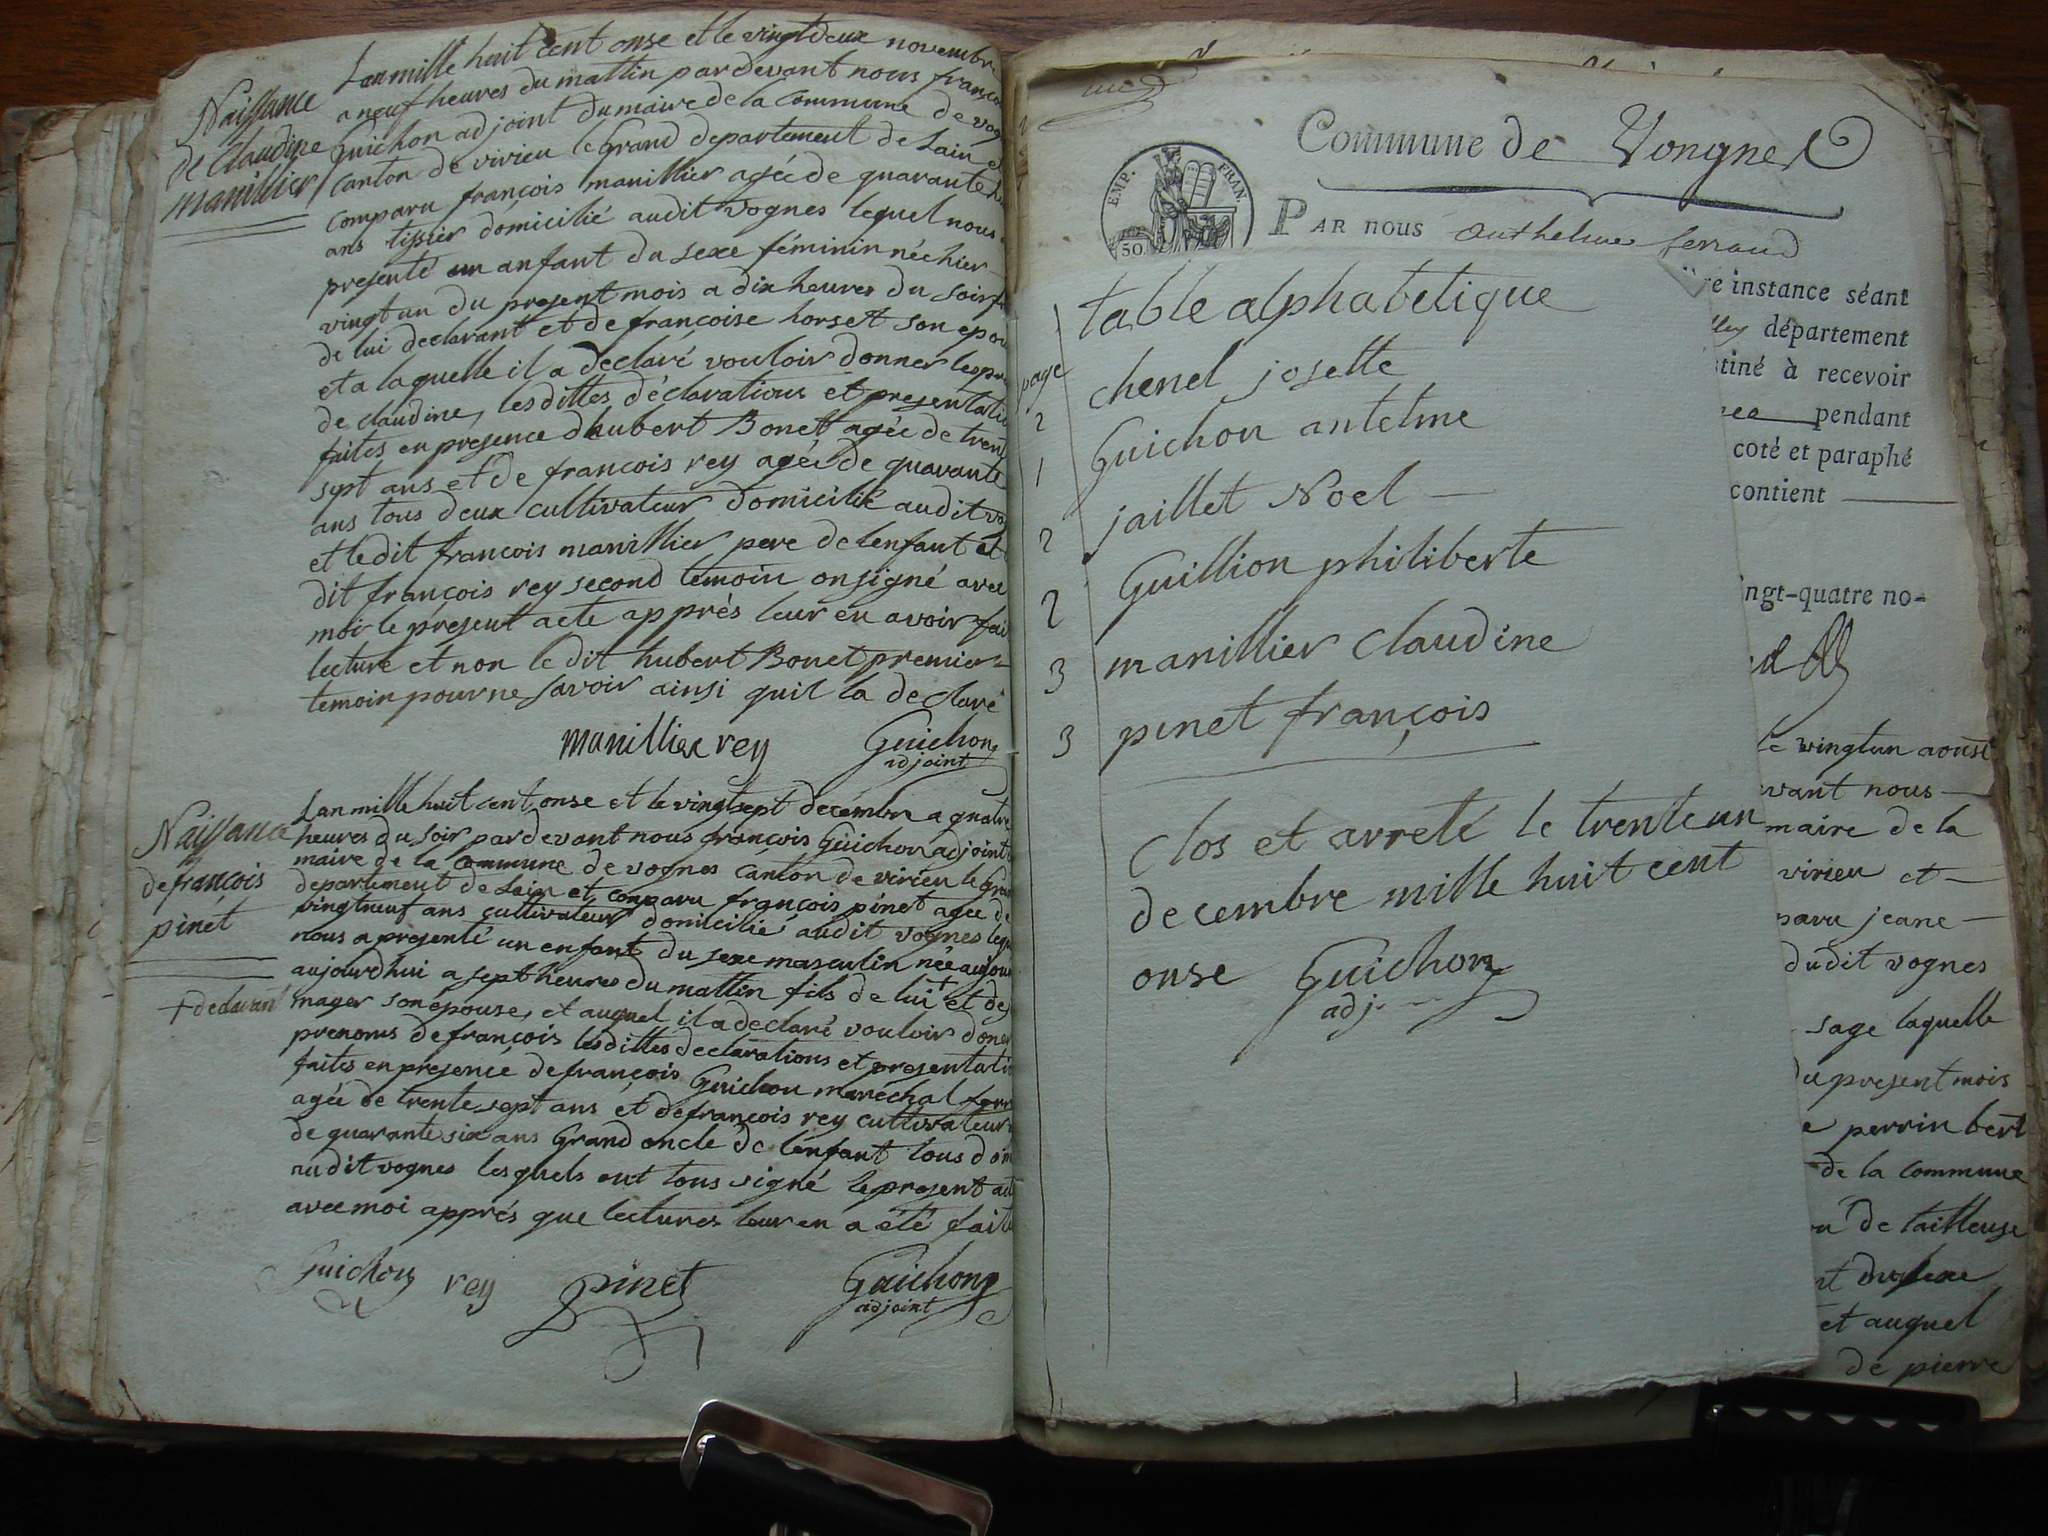 Naissance
de Claudine
manillier
Lan mille huit cent onse et le vingtdeux novembre
a neuf heures du mattin pardevant nous franço
Guichon adjoint du maire de la Commune de vog
canton de virieu le Grand departement de Lain et
comparu françois manillier agée de quarante
ans tissier domicilié audit vognes lequel nous a
presenté un anfant du sexe féminin née hier
vingt un du present mois a dix heures du soir
de lui declarant et de françoise horset son epou
et a laquelle il a declaré vouloir donner les pre
de claudine, lesdittes déclarations et presentatio
faites en presence dhubert Bonet agée de trent
sept ans et de francois rey agée de quarante
ans tous deux cultivateur domicilié audit vo
et ledit françois manillier pere de lenfant et
dit françois rey second temoin onsigné avec
moi le présent acte apprés leur en avoir fai
lecture et non le dit hubert Bonet premier
temoin pour ne savoir ainsi quil la declaré
manillier rey Guichon
adjoint
Naissance
de françois
pinet
+ declarant
Lan mille huit cent onse et le vingt sept decembre a quatre
heures du soir pardevant nous françois Guichon adjoint
maire de la Commune de vognes canton de virieu le Gran
departement de Lain et comparu françois pinet agée de
vingtneuf ans cultivateur domicilié audit vognes lequ
nous a presenté un enfant du sexe masculin née aujour
aujourdhui a sept heures du mattin fils de lui + et de
mager son épouse, et auquel il a declaré vouloir doner
prenoms de françois lesdittes declarations et presentatio
faites en presence de françois Guichon maréchal ferr
agée de trente sept ans et de françois rey cultivateur
de quarante six ans Grand oncle de lenfant tous dom
audit vognes lesquels ont tous signé le present act
avec moi apprés que lectures leur en a été faite
Guichon rey pinet Guichon
adjoint
Commune de Vongnes
EMP. FRAN.
50.
PAR nous anthelme ferraud
re instance séant
lley département
stiné à recevoir
pendant
coté et paraphé
contient
ingt-quatre no-
table alphabetique
page
2 chenel josette
1 Guichon antelme
2 jaillet Noel
2 Guillion philiberte
3 manillier Claudine
3 pinet françois
Clos et arreté le trente un
decembre mille huit cent
onse Guichon
adj.
le vingtun aoust
vant nous
maire de la
virieu et
paru jeane
dudit vognes
sage laquelle
du present mois
e perrin bert
de la commune
de tailleuse
nt du sexe
et auquel
de pierre